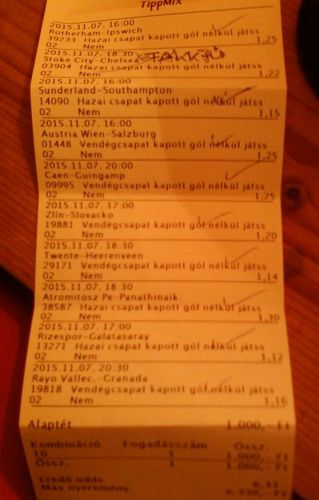 TippMix
2015.11.07. 16:00
Rotherham-Ipswich
39233 Hazai csapat kapott gól nélkül játss
02 Nem 1,25
2015.11.07. 18:30
Stoke City-Chelsea
03904 Hazai csapat kapott gól nélkül játss
02 Nem 1,22
2015.11.07. 16:00
Sunderland-Southampton
14090 Hazai csapat kapott gól nélkül játss
02 Nem 1,15
2015.11.07. 16:00
Austria Wien-Salzburg
01448 Vendégcsapat kapott gól nélkül játss
02 Nem 1,25
2015.11.07. 20:00
Caen-Guingamp
09995 Vendégcsapat kapott gól nélkül játss
02 Nem 1,25
2015.11.07. 17:00
Zlín-Slovacko
19881 Vendégcsapat kapott gól nélkül játss
02 Nem 1,20
2015.11.07. 18:30
Twente-Heerenveen
29171 Vendégcsapat kapott gól nélkül játss
02 Nem 1,14
2015.11.07. 18:30
Atromitosz Pe-Panathinaik.
38587 Hazai csapat kapott gól nélkül játss
02 Nem 1,30
2015.11.07. 17:00
Rizespor-Galatasaray
13271 Hazai csapat kapott gól nélkül játss
02 Nem 1,12
2015.11.07. 20:30
Rayo Vallec.-Granada
19818 Vendégcsapat kapott gól nélkül játss
02 Nem 1,16
Alaptét 1.000,- Ft
Kombináció Fogadásszám Össz.
10 1 1.000,- Ft
Össz. 1 1.000,- Ft
Eredő odds
Max nyeremény